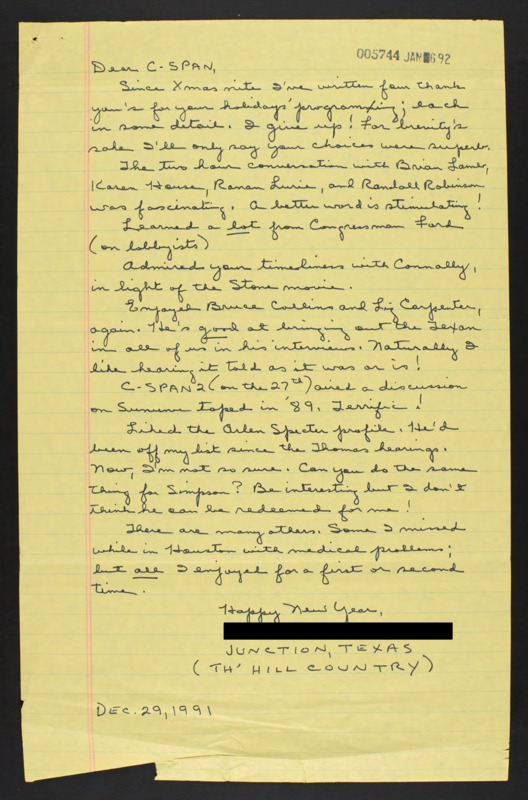 005744 JAN 6 92
Dear C-SPAN,
Since Xmas nite I've written four thank
you's for your holidays' programming; each
in some detail. I give up! For brevity's
sake I'll only say your choices were superb.
The two hour conversation with Brian Lamb,
Karen House, Ranan Lurie, and Randall Robinson
was fascinating. A better word is stimulating!
Learned a lot from Congressman Ford
(on lobbyists)
Admired your timeliness with Connally,
in light of the Stone movie.
Enjoyed Bruce Collins and Liz Carpenter,
again. He's good at bringing out the Texan
in all of us in his interviews. Naturally I
like hearing it told as it was or is!
C-SPAN 2 (on the 27th) aired a discussion
on Sununu taped in '89. Terrific!
Liked the Arlen Specter profile. He'd
been off my list since the Thomas hearings.
Now, I'm not so sure. Can you do the same
thing for Simpson? Be interesting but I don't
think he can be redeemed for me!
There are many others. Some I missed
while in Houston with medical problems;
but all I enjoyed for a first or second
time.
Happy New Year,
JUNCTION, TEXAS
(TH' HILL COUNTRY)
DEC. 29, 1991